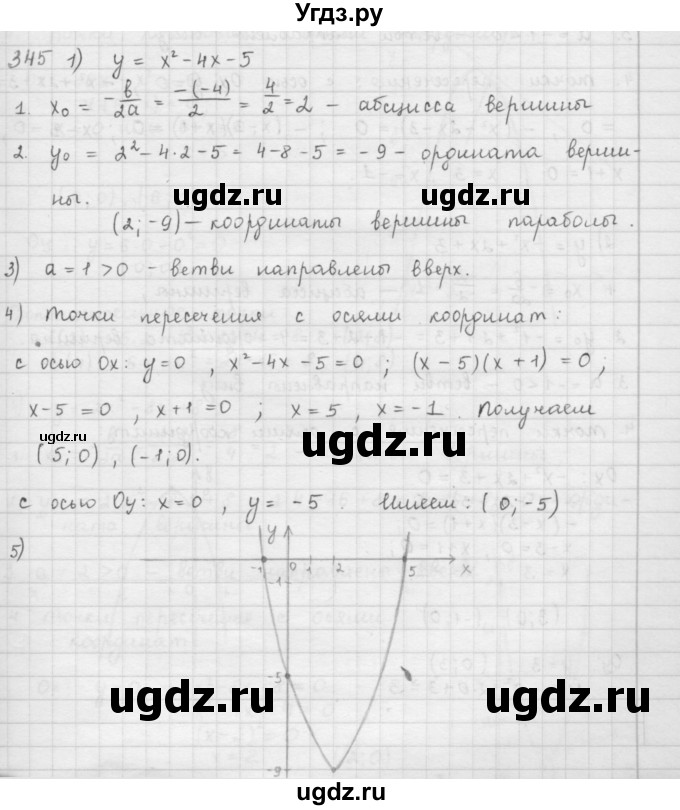 Угдз.ру
345 1) y = x² - 4x - 5
1. x₀ = -в/2a = -(-4)/2 = 4/2 = 2 - абсцисса вершины
2. y₀ = 2² - 4·2 - 5 = 4 - 8 - 5 = -9 - ордината верши-
ны.
ugdz.ru ugdz.ru
(2; -9) - координаты вершины параболы.
3) a = 1 > 0 - ветви направлены вверх.
4) Точки пересечения с осями координат:
ugdz.ru ugdz.ru
с осью Ox: y=0 , x² - 4x - 5 = 0 ; (x - 5)(x + 1) = 0 ;
x - 5 = 0 , x + 1 = 0 ; x = 5 , x = -1 . Получаем
ugdz.ru
(5; 0) , (-1; 0).
ugdz.ru
с осью Oy: x = 0 , y = -5 . Имеем: (0; -5)
5)
y
-1 0 1 2 5 x
-1
-5
ugdz.ru ugdz.ru
-9
ugdz.ru